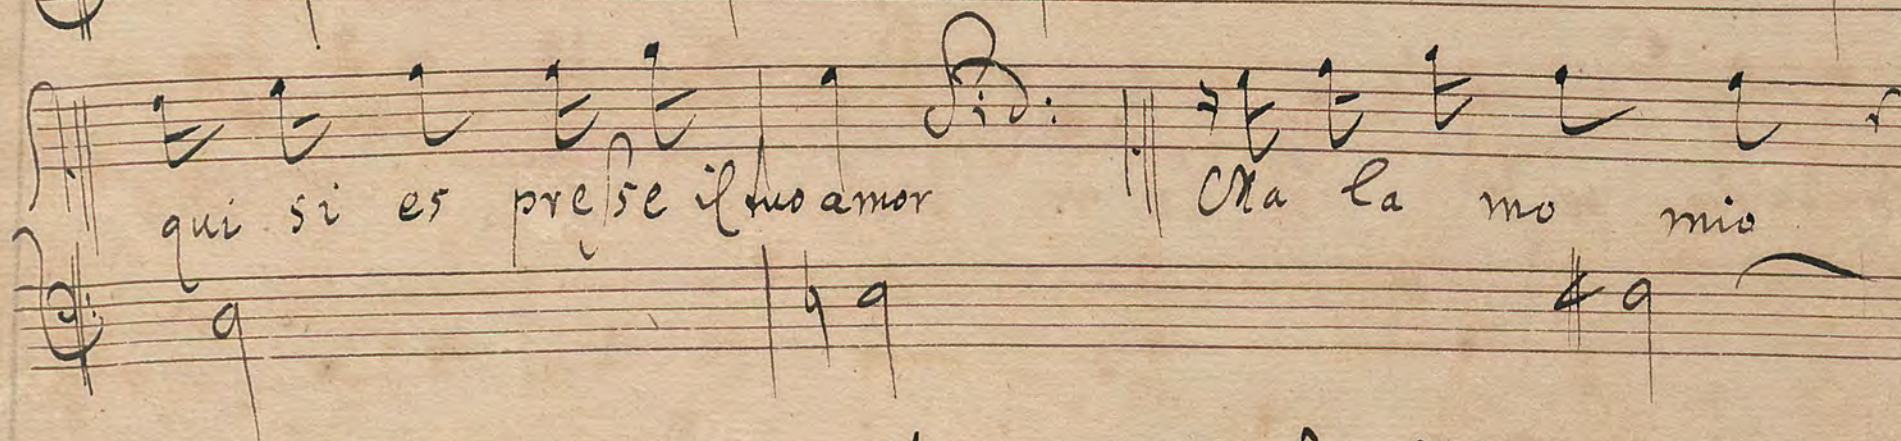 qui si es presse il tuo amor Ma la mo mio